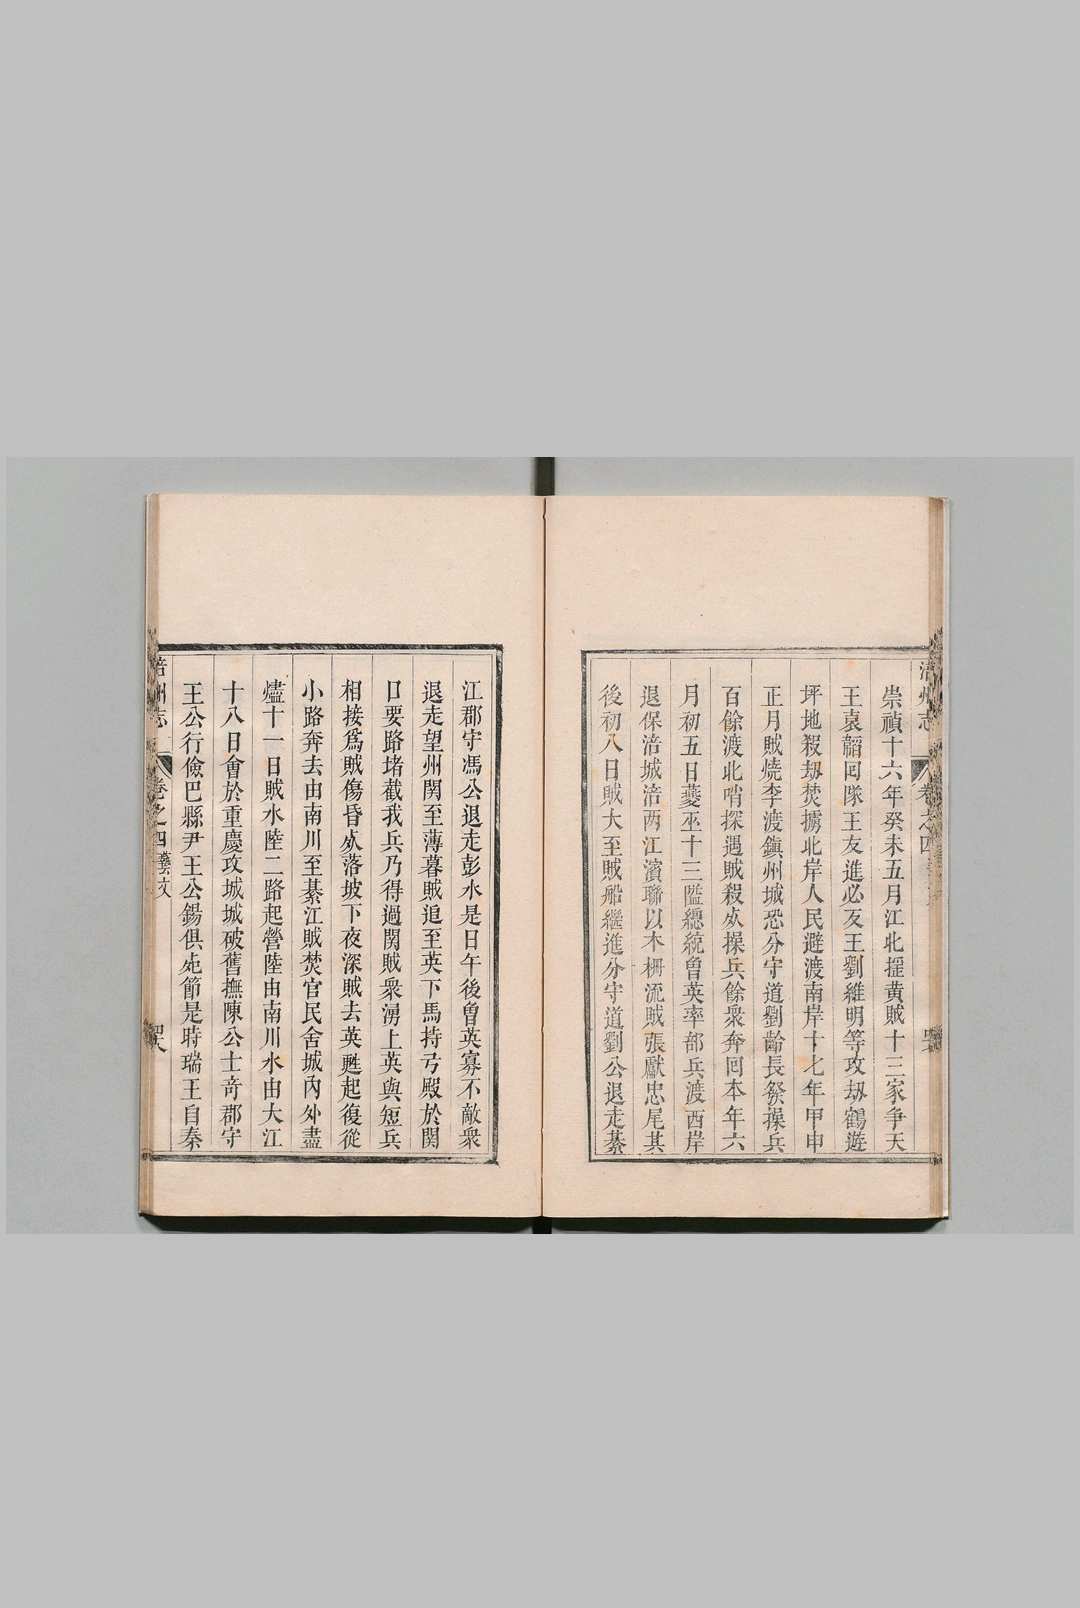 崇禎十六年癸未五月江北揺黄賊十三家爭天
王袁韜囘隊王友進必反王劉維明等攻刼鶴遊
坪地殺刼焚擄北岸人民避渡南岸十七年甲申
正月賊燒李渡鎭州城恐分守道劉齡長發操兵
百餘渡北哨探遇賊殺死操兵餘衆奔囘本年六
月初五日夔巫十三隘總統曾英率部兵渡西岸
退保涪城涪西江濱聯以木柵流賊張獻忠尾其
後初八日賊大至賊船繼進分守道劉公退走綦
江郡守馮公退走彭水是日午後曾英寡不敵衆
退走望州関至薄暮賊追至英下馬持弓殿於関
口要路堵截我兵乃得過関賊衆湧上英與短兵
相接爲賊傷昏死落坡下夜深賊去英甦起復從
小路奔去由南川至綦江賊焚官民舍城內外盡
燼十一日賊水陸二路起營陸由南川水由大江
十八日會於重慶攻城城破舊撫陳公士奇郡守
王公行儉巴縣尹王公錫俱死節是時瑞王自秦
涪州志
卷之四藝文